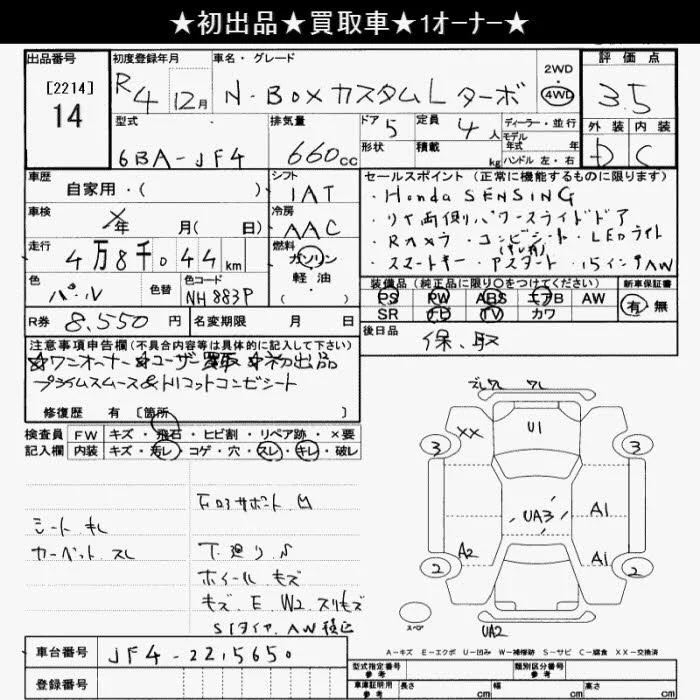 ★初出品★買取車★1ｵｰﾅｰ★
出品番号 初度登録年月 車名・グレード 評価点
[2214]
14
R4 12月 N-BOXカスタムLターボ 2WD 4WD 3.5
型式 排気量 ドア 5 定員 4人 ディーラー・並行 外装 内装
6BA-JF4 660cc 形状 積載 kg モデル年式 年 ハンドル 左・右 D C
車歴 自家用・( ) シフト 1AT セールスポイント (正常に機能するものに限ります)
車検 年 月( 日) 冷房 AAC ・Honda SENSING
・リヤ両側パワースライドドア
走行 4万8千044km 燃料 ガソリン・軽油・ ・Rカメラ ・コンビシート ・LEDライト
・スマートキー ・アスタート ・15インチAW
色 パール 色替 色コード NH883P 装備品 (純正品に限り○をつけてください) 新車保証書
PS PW ABS エアB AW 有・無
SR ナビ TV カワ
R券 8,550円 名変期限 月 日 後日品 保、取
注意事項申告欄(不具合内容等は具体的に記入して下さい)
☆ワンオーナー ☆ユーザー買取 ☆初出品
プライムスムース&トリコットコンビシート
修復歴 有 [箇所 ]
検査員記入欄 FW キズ・飛石・ヒビ割・リペア跡・×要
内装 キズ・汚レ・コゲ・穴・スレ・キレ・破レ
シート キレ
カーペット スレ
下廻り
ホイール キズ
キズ、E、W2、スリキズ
XX U1 3 3
UA3 A1
A2 A1
2 2
スペア UA2
A-キズ E-エクボ U-凹み W-補修跡 S-サビ C-腐食 XX-交換済
車台番号 JF4-2215650
登録番号
型式指定番号 参考 類別区分番号 参考
車庫証明用 参考 長さ cm 幅 cm 高さ cm